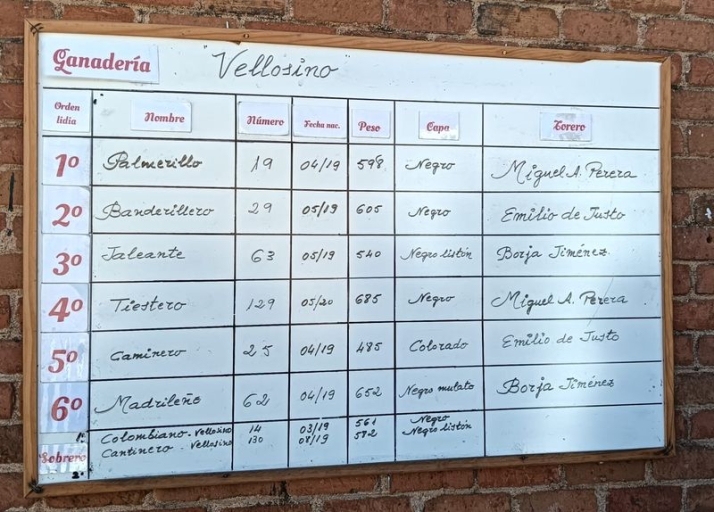 Ganadería Vellosino
Orden lidia Nombre Número Fecha nac. Peso Capa Torero
1º Palmerillo 19 04/19 598 Negro Miguel A. Perera
2º Banderillero 29 05/19 605 Negro Emilio de Justo
3º Jaleante 63 05/19 540 Negro listón Borja Jiménez
4º Tiestero 129 05/20 685 Negro Miguel A. Perera
5º Caminero 25 04/19 485 Colorado Emilio de Justo
6º Madrileño 62 04/19 652 Negro mulato Borja Jiménez
1º Colombiano - Vellosino 14 03/19 561 Negro
Sobrero Cantinero - Vellosino 130 08/19 582 Negro listón
2º